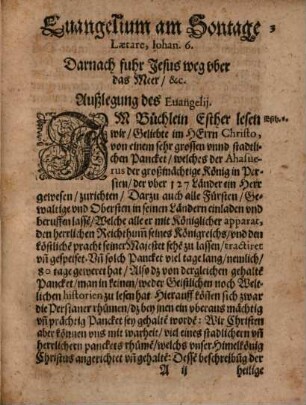 Euangelium am Sontage
3
Lætare, Johan. 6.
Darnach fuhr Jesus weg vber
das Meer / &c.
Außlegung des Euangelij.
IM Büchlein Esther lesen
wir / Geliebte im HErrn Christo,
von einem sehr grossen vnnd stadtli-
chen Pancket / welches der Ahasue-
rus der großmächtige König in Per-
sien / der vber 127 Länder ein Herr
gewesen / zurichten / Darzu auch alle Fürsten / Ge-
waltige vnd Obersten in seinen Ländern einladen vnd
beruffen lassẽ / Welche alle er mit Königlicher apparat,
den herrlichen Reichthum seines Königreichs / vnd den
köstlichẽ pracht seiner Majestet sehẽ zu lassen / tractiret
vñ gespeiset. Vñ solch Pancket viel tage lang / nemlich /
80 tage gewehret hat / Also dz von dergleichen gehaltẽ
Pancket / man in keinen / weder Geistlichen noch Welt-
lichen historien zu lesen hat Hierauff köñen sich zwar
die Persianer rhümen / dz bey men ein vberaus mächtig
vñ prächtig Pancket sey gehalten wordẽ: Wir Christen
aber können vns mit warheit / viel eines stadtlichern vñ
herrlichern panckets rhümẽ / welchs vnser Himelkönig
Christus angerichtet vñ gehaltẽ: Desse beschreibũg der
A ij
heilige